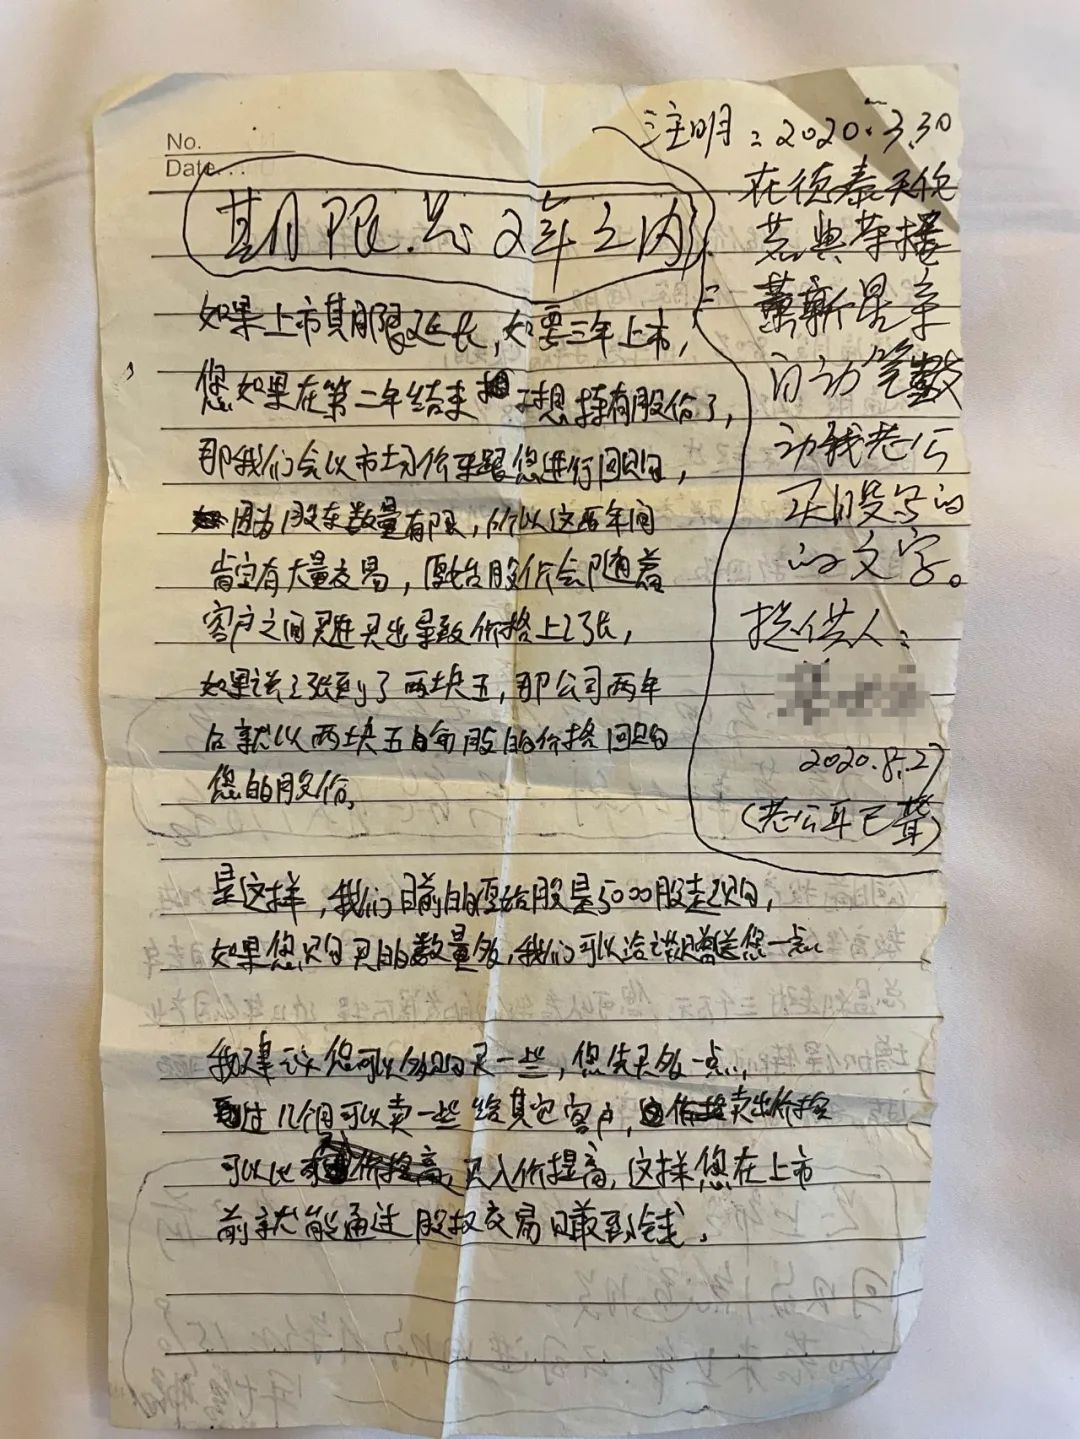 No.
Date
期限.是2年之内
如果上市期限延长,如要三年上市,
您如果在第二年结束 不想持有股份了,
那我们会以市场价来跟您进行回购,
因为股东数量有限,所以这两年间
肯定有大量交易,原始股价会随着
客户之间买进买出导致价格上涨,
如果说涨到了两块五,那公司两年
后就以两块五每股的价格回购
您的股份。
是这样,我们目前的原始股是5000股起购,
如果您购买的数量多,我们可以给您赠送一点.
我建议您可以多购买一些,您先买多一点,
过几个月可以卖一些给其它客户,卖出价格
可以比买入价提高,这样您在上市
前就能通过股权交易赚到钱.
注明:2020.3.30
在德泰天住
自动笔
动我老公
买股写的
的文字。
提供人:
2020.8.27
(老公耳已聋)